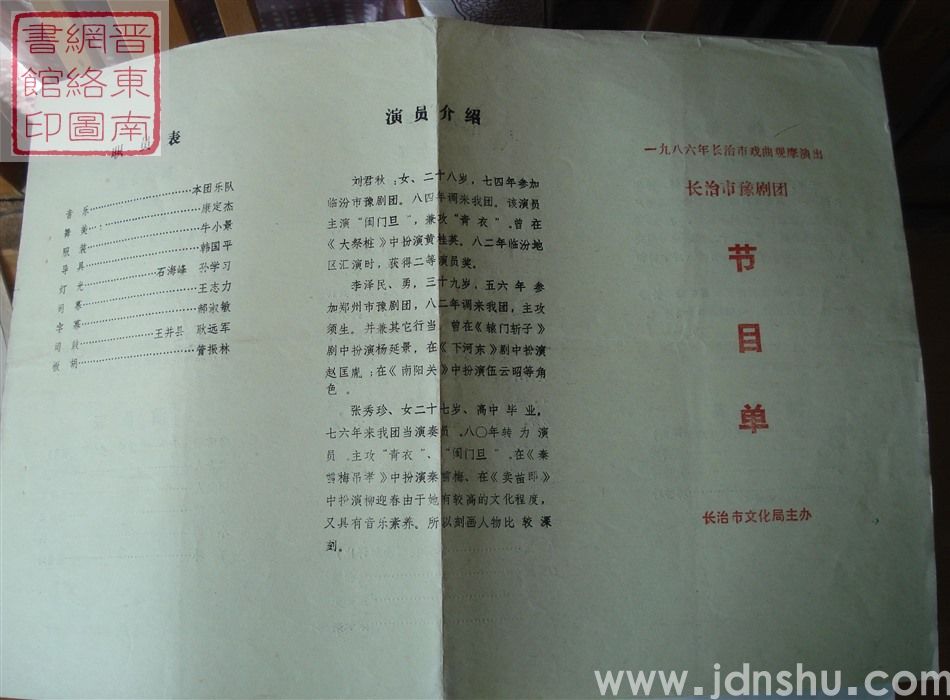 晋東南
網絡圖
書館印
表
音乐 本团乐队
舞美 康定杰
服装 牛小景
导具 韩国平
灯光 石海峰 孙学习
司幕 王志力
字幕 郝淑敏
司鼓 王井县 耿远军
板胡 管振林
演员介绍
刘君秋:女、二十八岁,七四年参加
临汾市豫剧团。八四年调来我团。该演员
主演“闺门旦”,兼攻“青衣”。曾在
《大祭桩》中扮演黄桂英。八二年临汾地
区汇演时,获得二等演员奖。
李泽民、勇,三十九岁,五六年参
加郑州市豫剧团,八二年调来我团,主攻
须生。并兼其它行当。曾在《辕门斩子》
剧中扮演杨延景,在《下河东》剧中扮演
赵匡胤;在《南阳关》中扮演伍云昭等角
色。
张秀珍、女二十七岁、高中毕业,
七六年来我团当演奏员.八〇年转力演
员.主攻“青衣”、“闺门旦”.在《秦
雪梅吊孝》中扮演秦雪梅、在《卖苗郎》
中扮演柳迎春由于她有较高的文化程度,
又具有音乐素养。所以刻画人物比较深
刻。
一九八六年长治市戏曲观摩演出
长治市豫剧团
节
目
单
长治市文化局主办
www.jdnshu.com